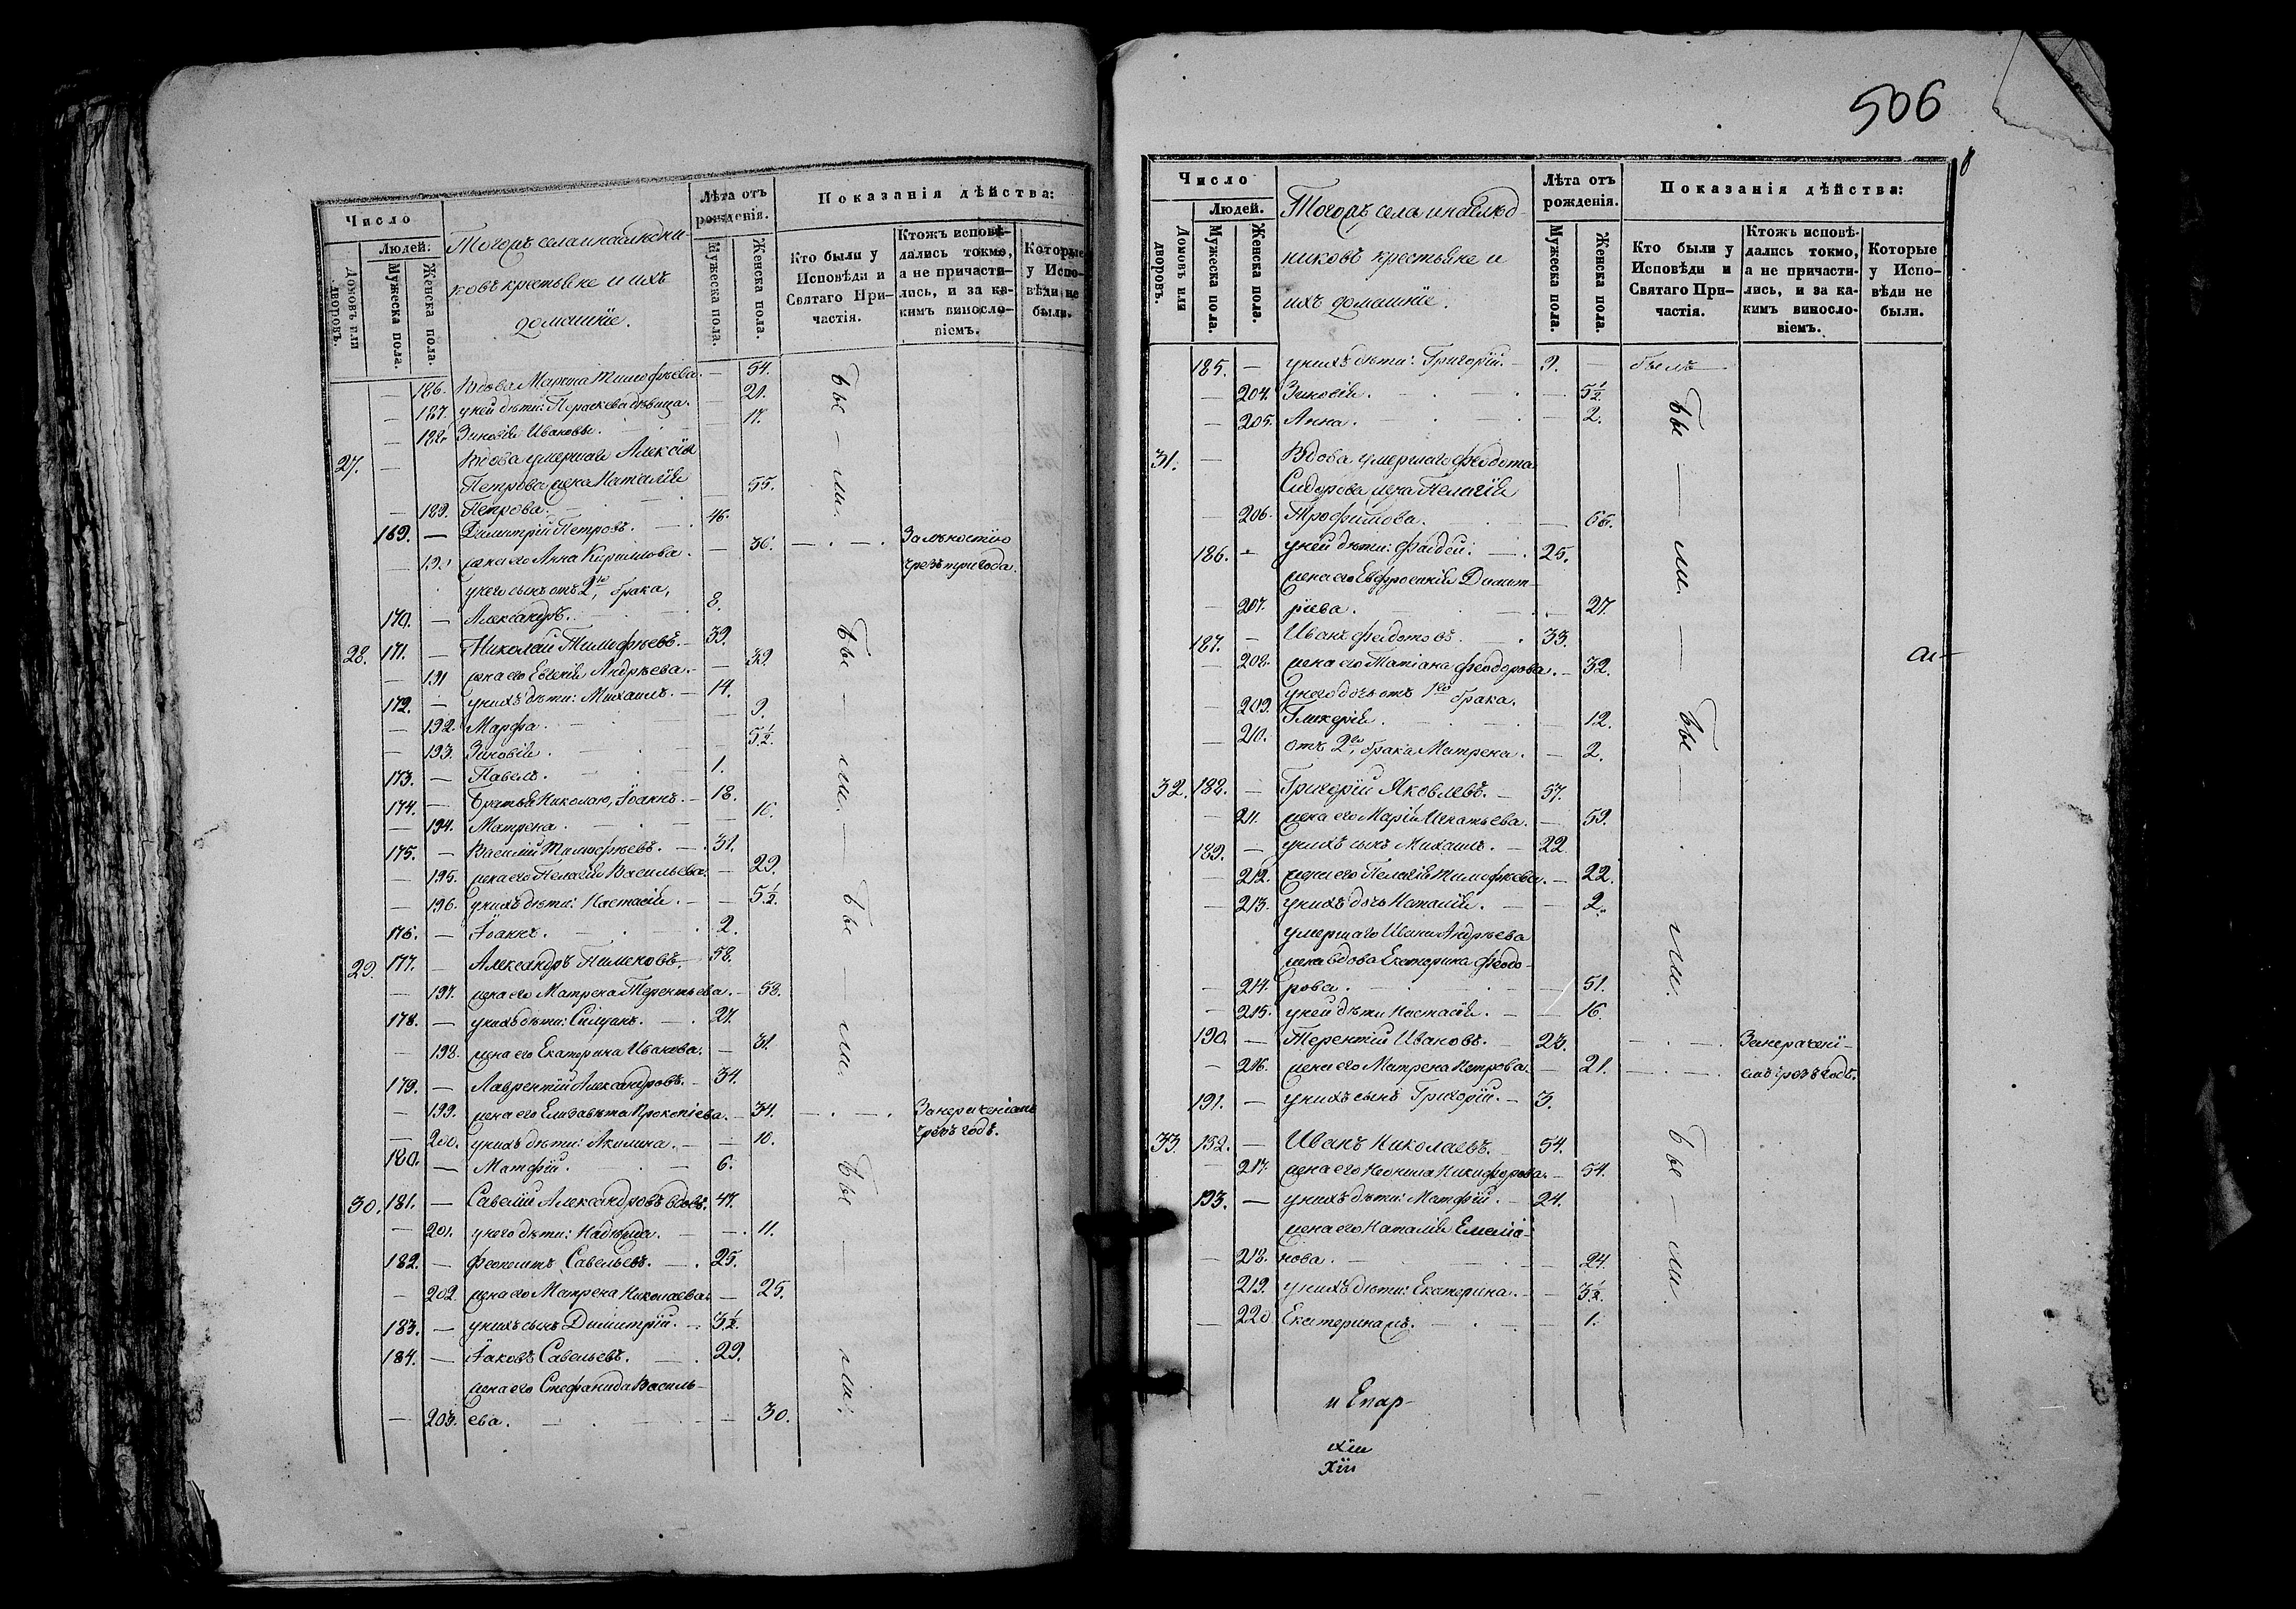 Число
Людей.
Домовъ или дворовъ.
Мужеска пола.
Женска пола.
Тогожъ села
ковъ крестьяне и ихъ
домашніе.
Лѣта отъ рожденія.
Мужеска пола.
Женска пола.
Показанія дѣйства:
Кто были у Исповѣди и Святаго Причастія.
Ктожъ исповѣдались токмо, а не причастились, и за какимъ винословіемъ.
Которые у Исповѣди не были.
— 186. Вдова Марѳа Тимофѣева. — 54.
— 187. у ней дѣти: Параскева дѣвица. 21.
— 188. Зиновія Ивановы. 17.
27. — Вдова умершаго Алексія
Петрова жена Наталія
— 189. Петрова. — 55.
169. — Димитрій Петровъ. 46.
— 190 жена его Анна Кириллова. — 36. За
чрезъ три года.
у него сынъ отъ 2го брака,
170. — Александръ. 8.
28. 171. — Николай Тимофѣевъ. — 39.
— 191 жена его Евгенія Андрѣева. — 39.
172. — у нихъ дѣти: Михаилъ. — 14.
— 192. Марфа. 9.
— 193. Зиновія. 5½.
173. — Павелъ. 1.
174. — Братья Николаю, Іоаннъ. — 18.
— 194. Матрена. 16.
175. — Василій Тимофѣевъ. — 31.
— 195. жена его Пелагія Васильева. — 29.
— 196. у нихъ дѣти: Настасія. — 5½
176. — Іоаннъ. 2.
29. 177. — Александръ Пименовъ. 58.
— 197. жена его Матрена Терентьева. — 58.
178. — у нихъ дѣти: Силуанъ. — 27.
— 198. жена его Екатерина Иванова. — 31.
179. — Лаврентій Александровъ. — 34.
— 199. жена его Елизавета Прокопіева. — 34. За нераченіемъ
— 200. у нихъ дѣти: Акилина. — 10. чрезъ годъ.
180. — Матфій. 6.
30. 181. — Савелій Александровъ вдовъ. 47.
— 201. у него дѣти: Надежда. — 11.
182. — Феоктистъ Савельевъ. 25.
— 202. жена его Матрена Николаева. — 25.
183. — у нихъ сынъ Димитрій. 3½.
184. — Іаковъ Савельевъ. 29.
жена его Стефанида Василь-
— 203. ева. — 30.
Бы — ли.
Бы — ли.
Бы — ли.
Бы — ли.
506
Число
Людей.
Домовъ или дворовъ.
Мужеска пола.
Женска пола.
Тогожъ села и наслѣд-
никовъ крестьяне и
ихъ домашніе.
Лѣта отъ рожденія.
Мужеска пола.
Женска пола.
Показанія дѣйства:
Кто были у Исповѣди и Святаго Причастія.
Ктожъ исповѣдались токмо, а не причастились, и за какимъ винословіемъ.
Которые у Исповѣди не были.
185. — у нихъ дѣти: Григорій. — 9. — былъ
— 204. Зиновія. — 5½.
— 205. Анна. — 2.
31. — Вдова умершаго Феодота
Сидорова жена Пелагія
— 206. Трофимова. — 66.
186. — у ней дѣти: Фадей. — 25.
жена его Евфросинія Димит-
— 207. ріева. — 27.
187. — Иванъ Федотовъ. 33.
— 208. жена его Татіана Феодорова. — 32.
у него дочь отъ 1го брака.
— 209. Гликерія. — 12.
— 210. отъ 2го брака Матрена. — 2.
32. 188. — Григорій Яковлевъ. — 57.
— 211. жена его Марія Игнатьева. — 59.
189. — у нихъ сынъ Михаилъ. — 22
— 212. жена его Пелагія Тимофѣева. — 22.
— 213. у нихъ дочь Наталія. — 2.
умершаго Ивана Андрѣева
жена вдова Екатерина Феодо-
— 214. рова. — 51.
— 215. у ней дѣти Настасія. — 16.
190. — Терентій Ивановъ. — 23. За нераченi-
— 216. жена его Матрена Петрова. — 21. емъ чрезъ годъ.
191. — у нихъ сынъ Григорій. — 3.
33. 192. — Иванъ Николаевъ. 54.
— 217. жена его Неонила Никифорова. — 54.
193. — у нихъ дѣти: Матфій. — 24.
жена его Наталія Емеліа-
— 218. нова. — 24.
— 219. у нихъ дѣти: Екатерина. — 3½.
— 220 Екатерина жъ. — 1.
Бы — ли.
Бы — ли.
Бы — ли.
и Епар-